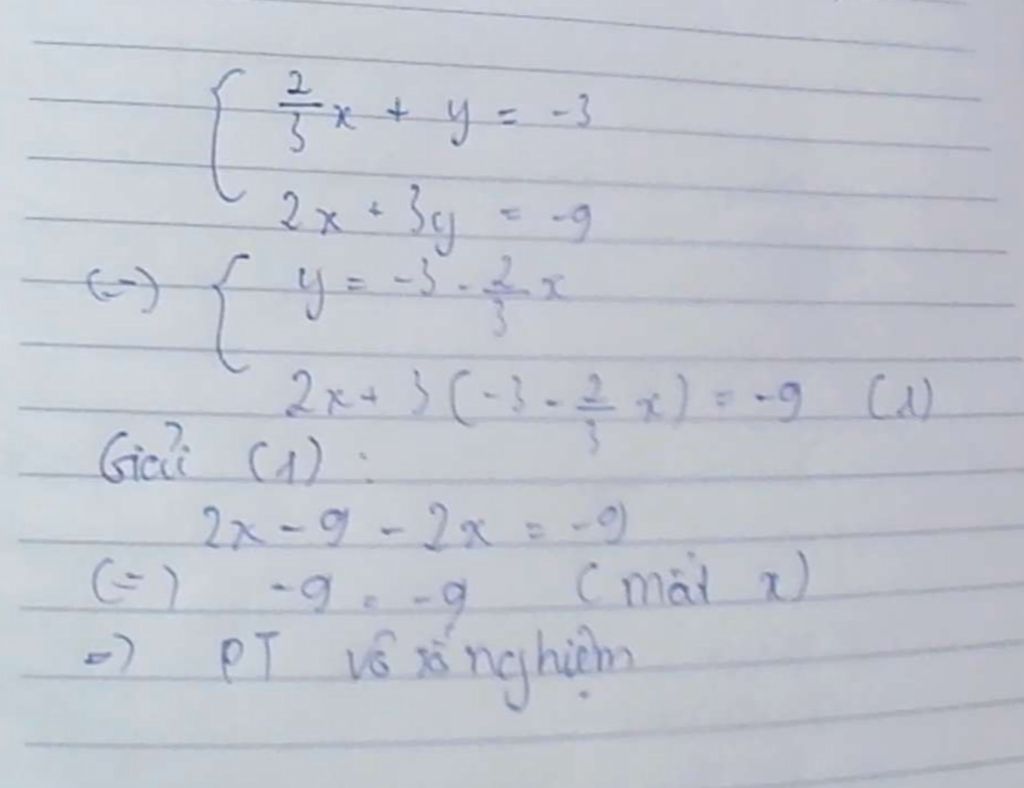 { 2/3 x + y = -3
2x + 3y = -9
(=) { y = -3 - 2/3 x
2x + 3(-3 - 2/3 x) = -9 (1)
Giải (1) :
2x - 9 - 2x = -9
(=) -9 = -9 (mất x)
=) PT vô số nghiệm